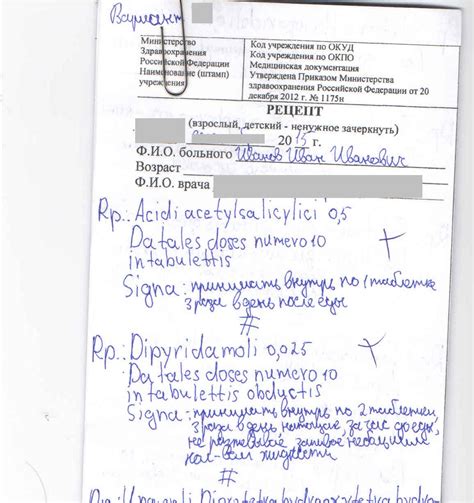 Вариант
Министерство
Здравоохранения
Российской Федерации
Наименование (штамп)
учреждения
Код учреждения по ОКУД
Код учреждения по ОКПО
Медицинская документация
Утверждена Приказом Министерства
здравоохранения Российской Федерации от 20
декабря 2012 г. № 1175н
РЕЦЕПТ
(взрослый, детский - ненужное зачеркнуть)
2015 г.
Ф.И.О. больного Иванов Иван Иванович
Возраст
Ф.И.О. врача
Rp.: Acidi acetylsalicylici 0,5
Da tales doses numero 10
in tabulettis
Signa: принимать внутрь по 1 таблетке
3 раза в день после еды
#
Rp.: Dipyridamoli 0,025
Da tales doses numero 10
in tabulettis obductis
Signa: принимать внутрь по 2 таблетки,
3 раза в день, натощак, за час до еды,
не разжевывая, запивая небольшим
кол-вом жидкости
#